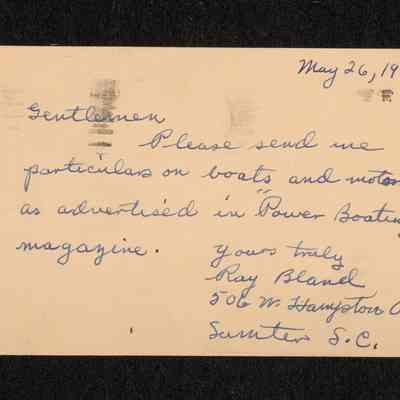 May 26, 19
Gentlemen
Please send me
particulars on boats and motor
as advertised in "Power Boating
magazine.
Yours truly
Ray Bland
506 W. Hampton A
Sumter S.C.